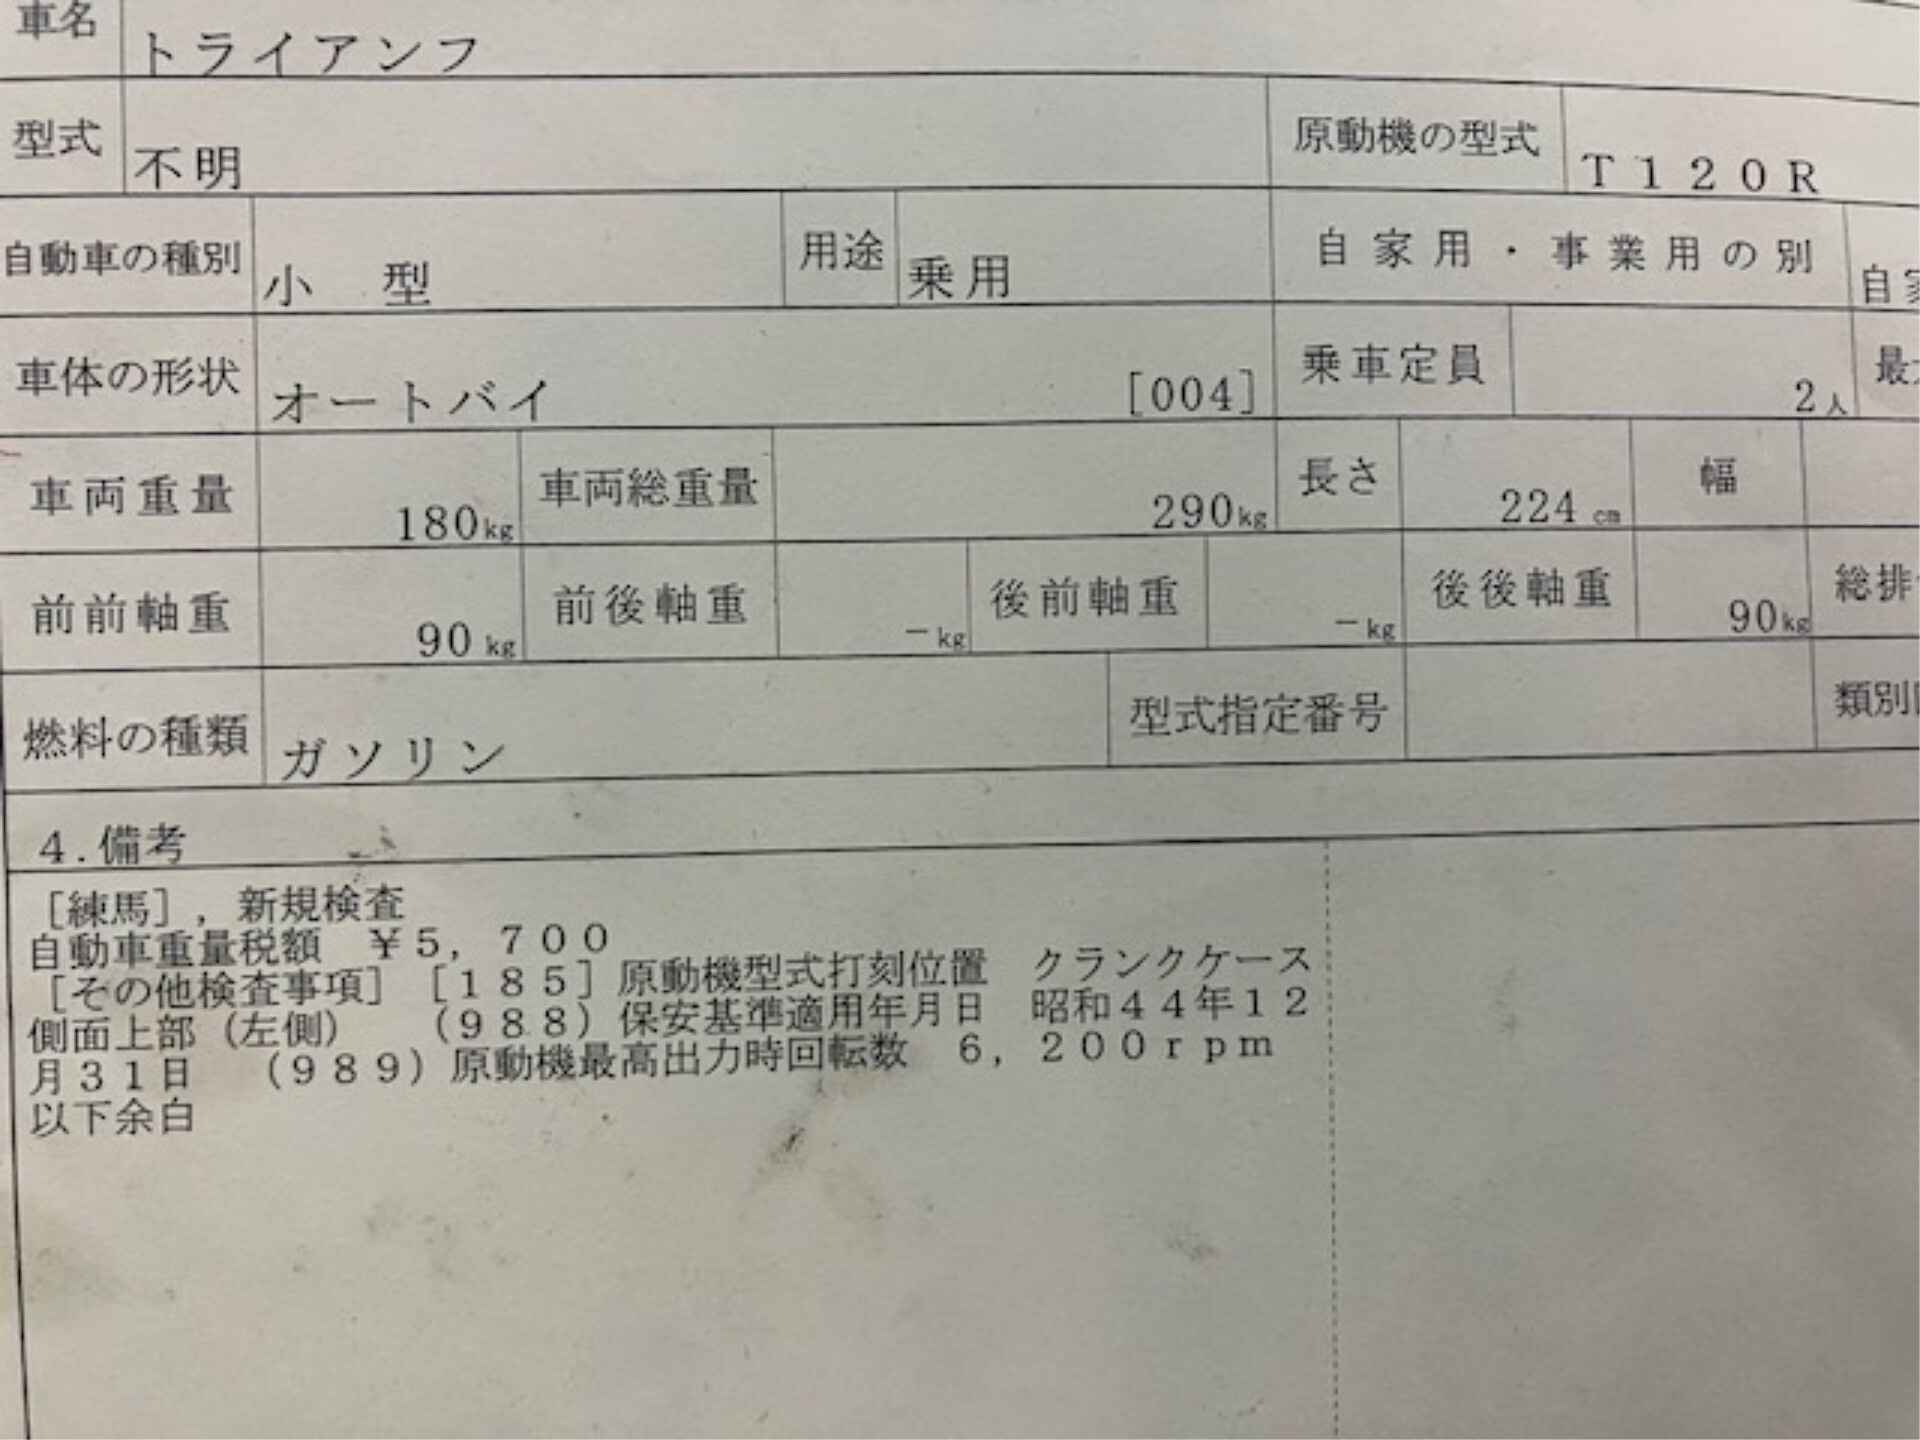 車名 トライアンフ
型式 不明 原動機の型式 T120R
自動車の種別 小 型 用途 乗用 自家用・事業用の別 自家
車体の形状 オートバイ [004] 乗車定員 2人 最
車両重量 180kg 車両総重量 290kg 長さ 224cm 幅
前前軸重 90kg 前後軸重 -kg 後前軸重 -kg 後後軸重 90kg 総排
燃料の種類 ガソリン 型式指定番号 類別
4.備考
[練馬],新規検査
自動車重量税額 ¥5,700
[その他検査事項] [185]原動機型式打刻位置 クランクケース
側面上部(左側) (988)保安基準適用年月日 昭和44年12
月31日 (989)原動機最高出力時回転数 6,200rpm
以下余白